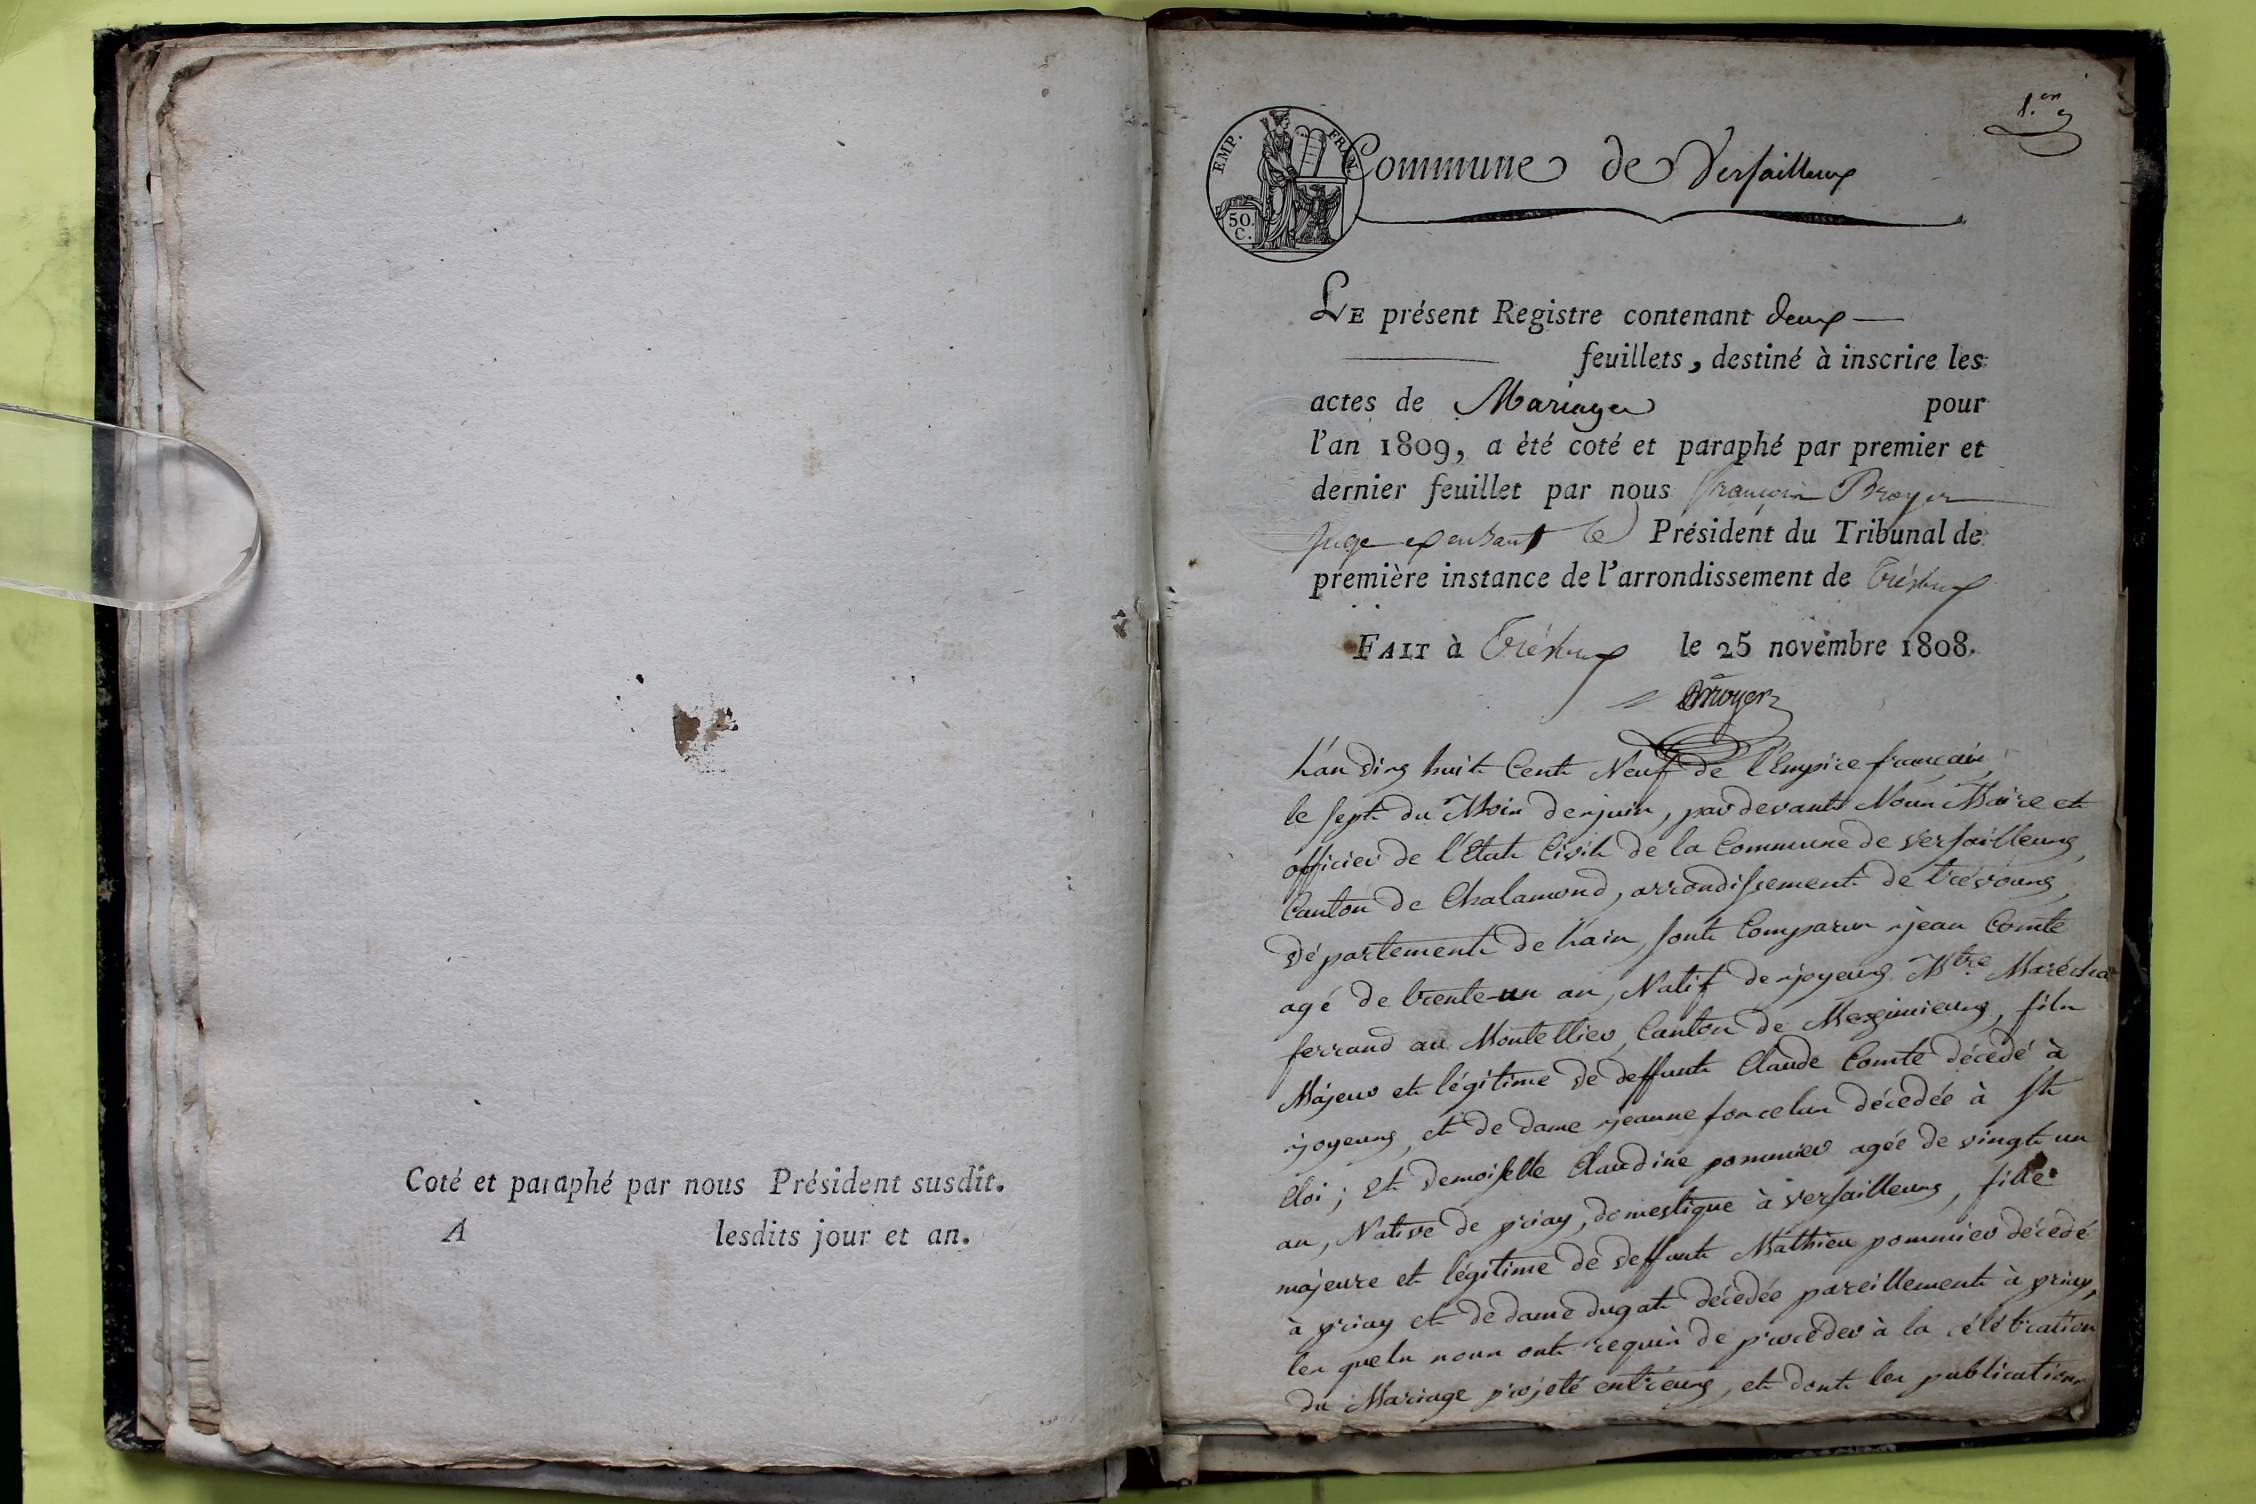 Coté et paraphé par nous Président susdit.
A lesdits jour et an.
1.er
EMP. FRAN.
50. C.
Commune de Versailleux
LE présent Registre contenant deux
feuillets, destiné à inscrire les
actes de Mariages pour
l'an 1809, a été coté et paraphé par premier et
dernier feuillet par nous françois Broyer
Juge exerçant le Président du Tribunal de
première instance de l'arrondissement de Trévoux
FAIT à Trévoux le 25 novembre 1808.
Broyer
L'an dix huit Cent Neuf de l'Empire français,
le sept du Mois de juin, par devant Nous Maire et
officier de l'Etat Civil de la Commune de versailleux,
Canton de Chalamond, arrondissement de trévoux,
département de L'ain, sont Comparus jean Comte
agé de trente-un an, Natif de joyeux Mtre Maréchal
ferrand au Montellier, Canton de Meximieux, fils
Majeur et légitime de deffunt Claude Comte décédé à
joyeux, et de dame jeanne foncelus décedée à St
Eloi; Et demoiselle Claudine pommier agée de vingt un
an, Native de priay, domestique à versailleux, fille
majeure et légitime de deffunt Mathieu pommier décedé
à priay et de dame dugat décedée pareillement à priay,
les quels nous ont requis de procéder à la célébration
du Mariage projeté entr'eux, et dont les publications